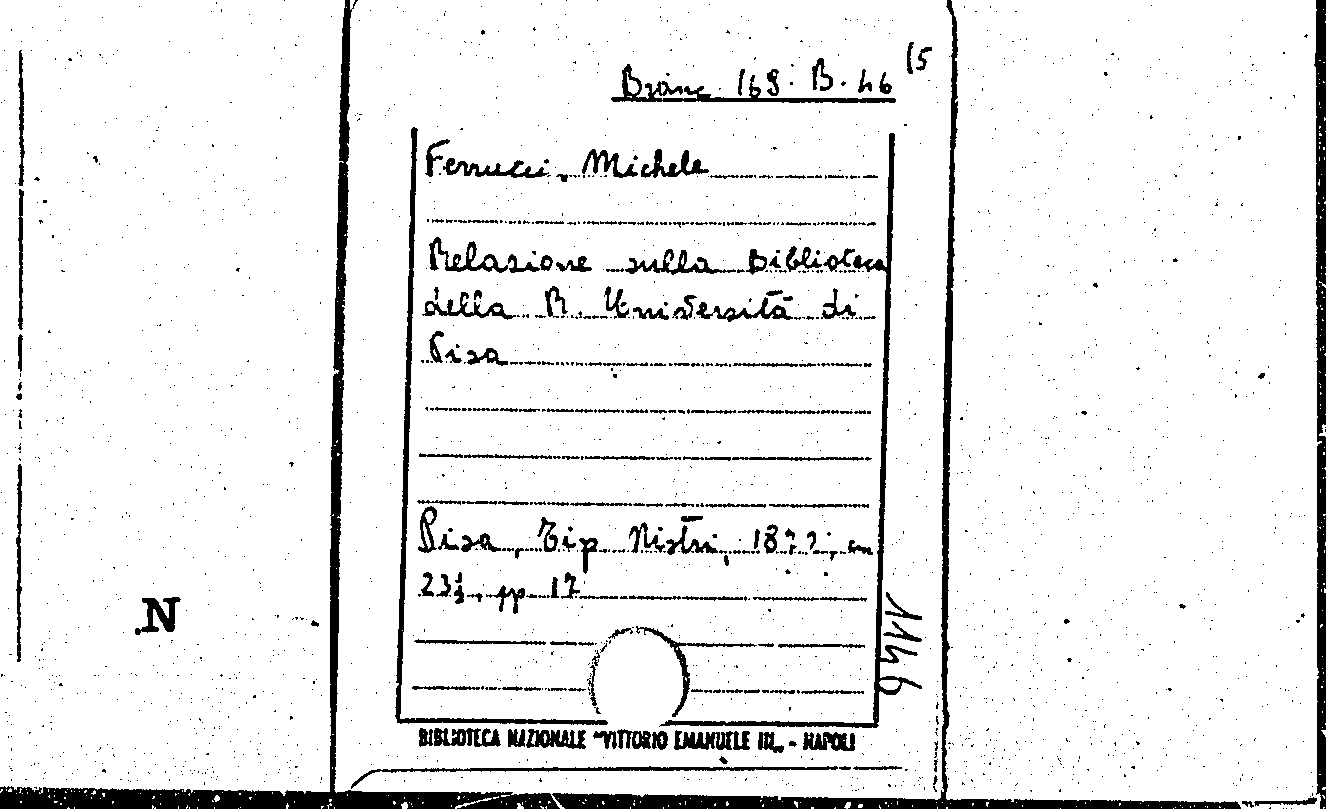 15
Branc. 169. B. 46
Ferrucci, Michele
Relazione sulla Biblioteca
della R. Università di
Pisa
Pisa, Tip Nistri, 1877; cm
23½, pp. 17
1146
N
BIBLIOTECA NAZIONALE "VITTORIO EMANUELE III„ - NAPOLI